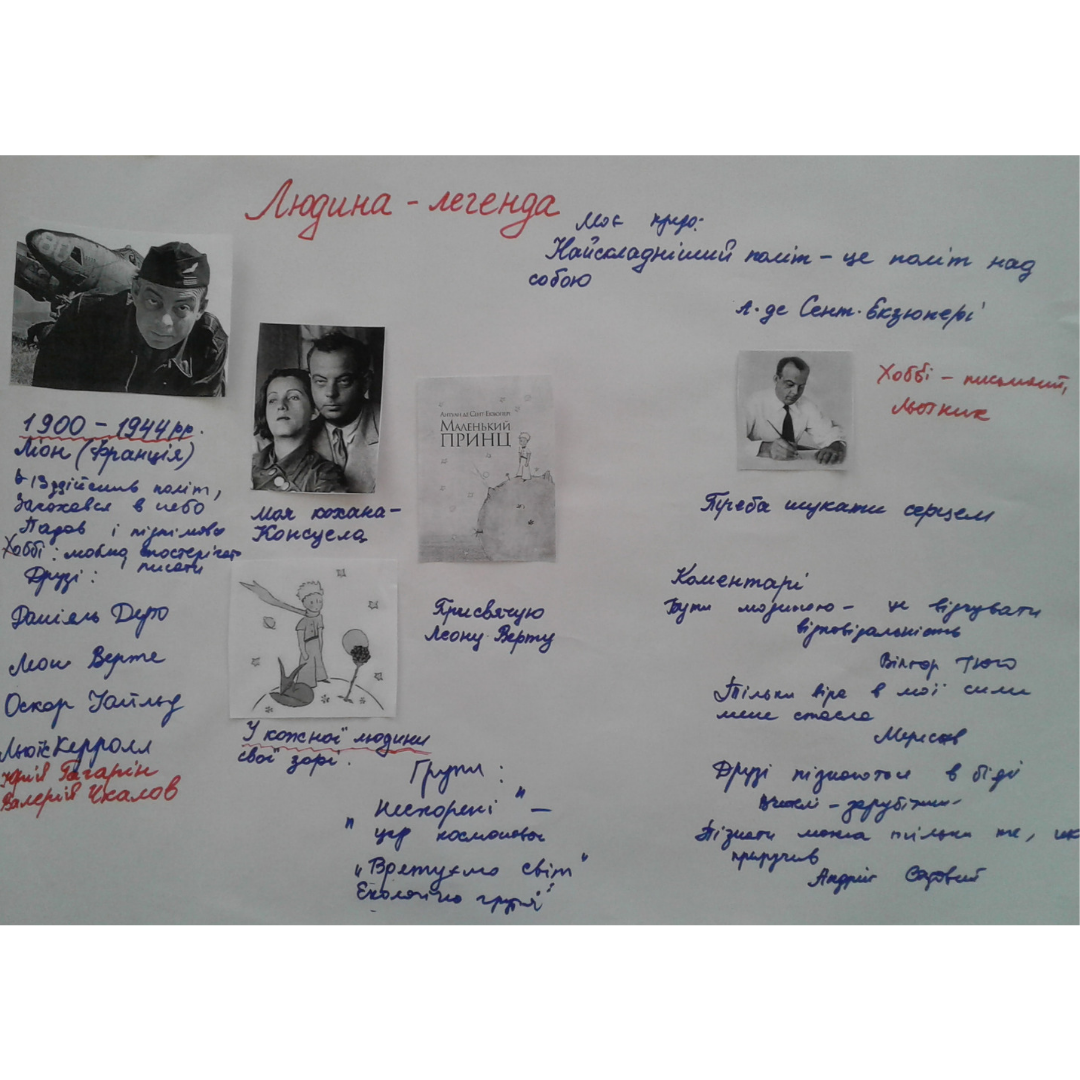 Людина - легенда
Моє кредо:
Найскладніший політ - це політ над
собою
А. де Сент. Екзюпері
1900 - 1944 рр.
(Франція)
В 13 здійснив політ,
Закохався в небо
Падав і піднімався
Хоббі: спостерігати
писати
Друзі:
Даніель Дефо
Верте
Оскар Уайльд
Льюїс Керролл
Юрій Гагарін
Валерій Чкалов
Моя кохана -
Консуела
АНТУАН ДЕ СЕНТ ЕКЗЮПЕРІ
МАЛЕНЬКИЙ
ПРИНЦ
Присвячую
Леону Верту
У кожної людини
свої зорі.
Групи:
"Нескорені" -
"Врятуємо світ"
група
Хоббі - письменник,
Льотчик
Треба шукати серцем
Коментарі
Бути людиною - це відчувати
відповідальність
Віктор Гюго
Тільки віра в мої сили
мене спасла
Мересьєв
Друзі пізнаються в біді
Пізнати можна тільки те, що
приручив
Андрій Садовий